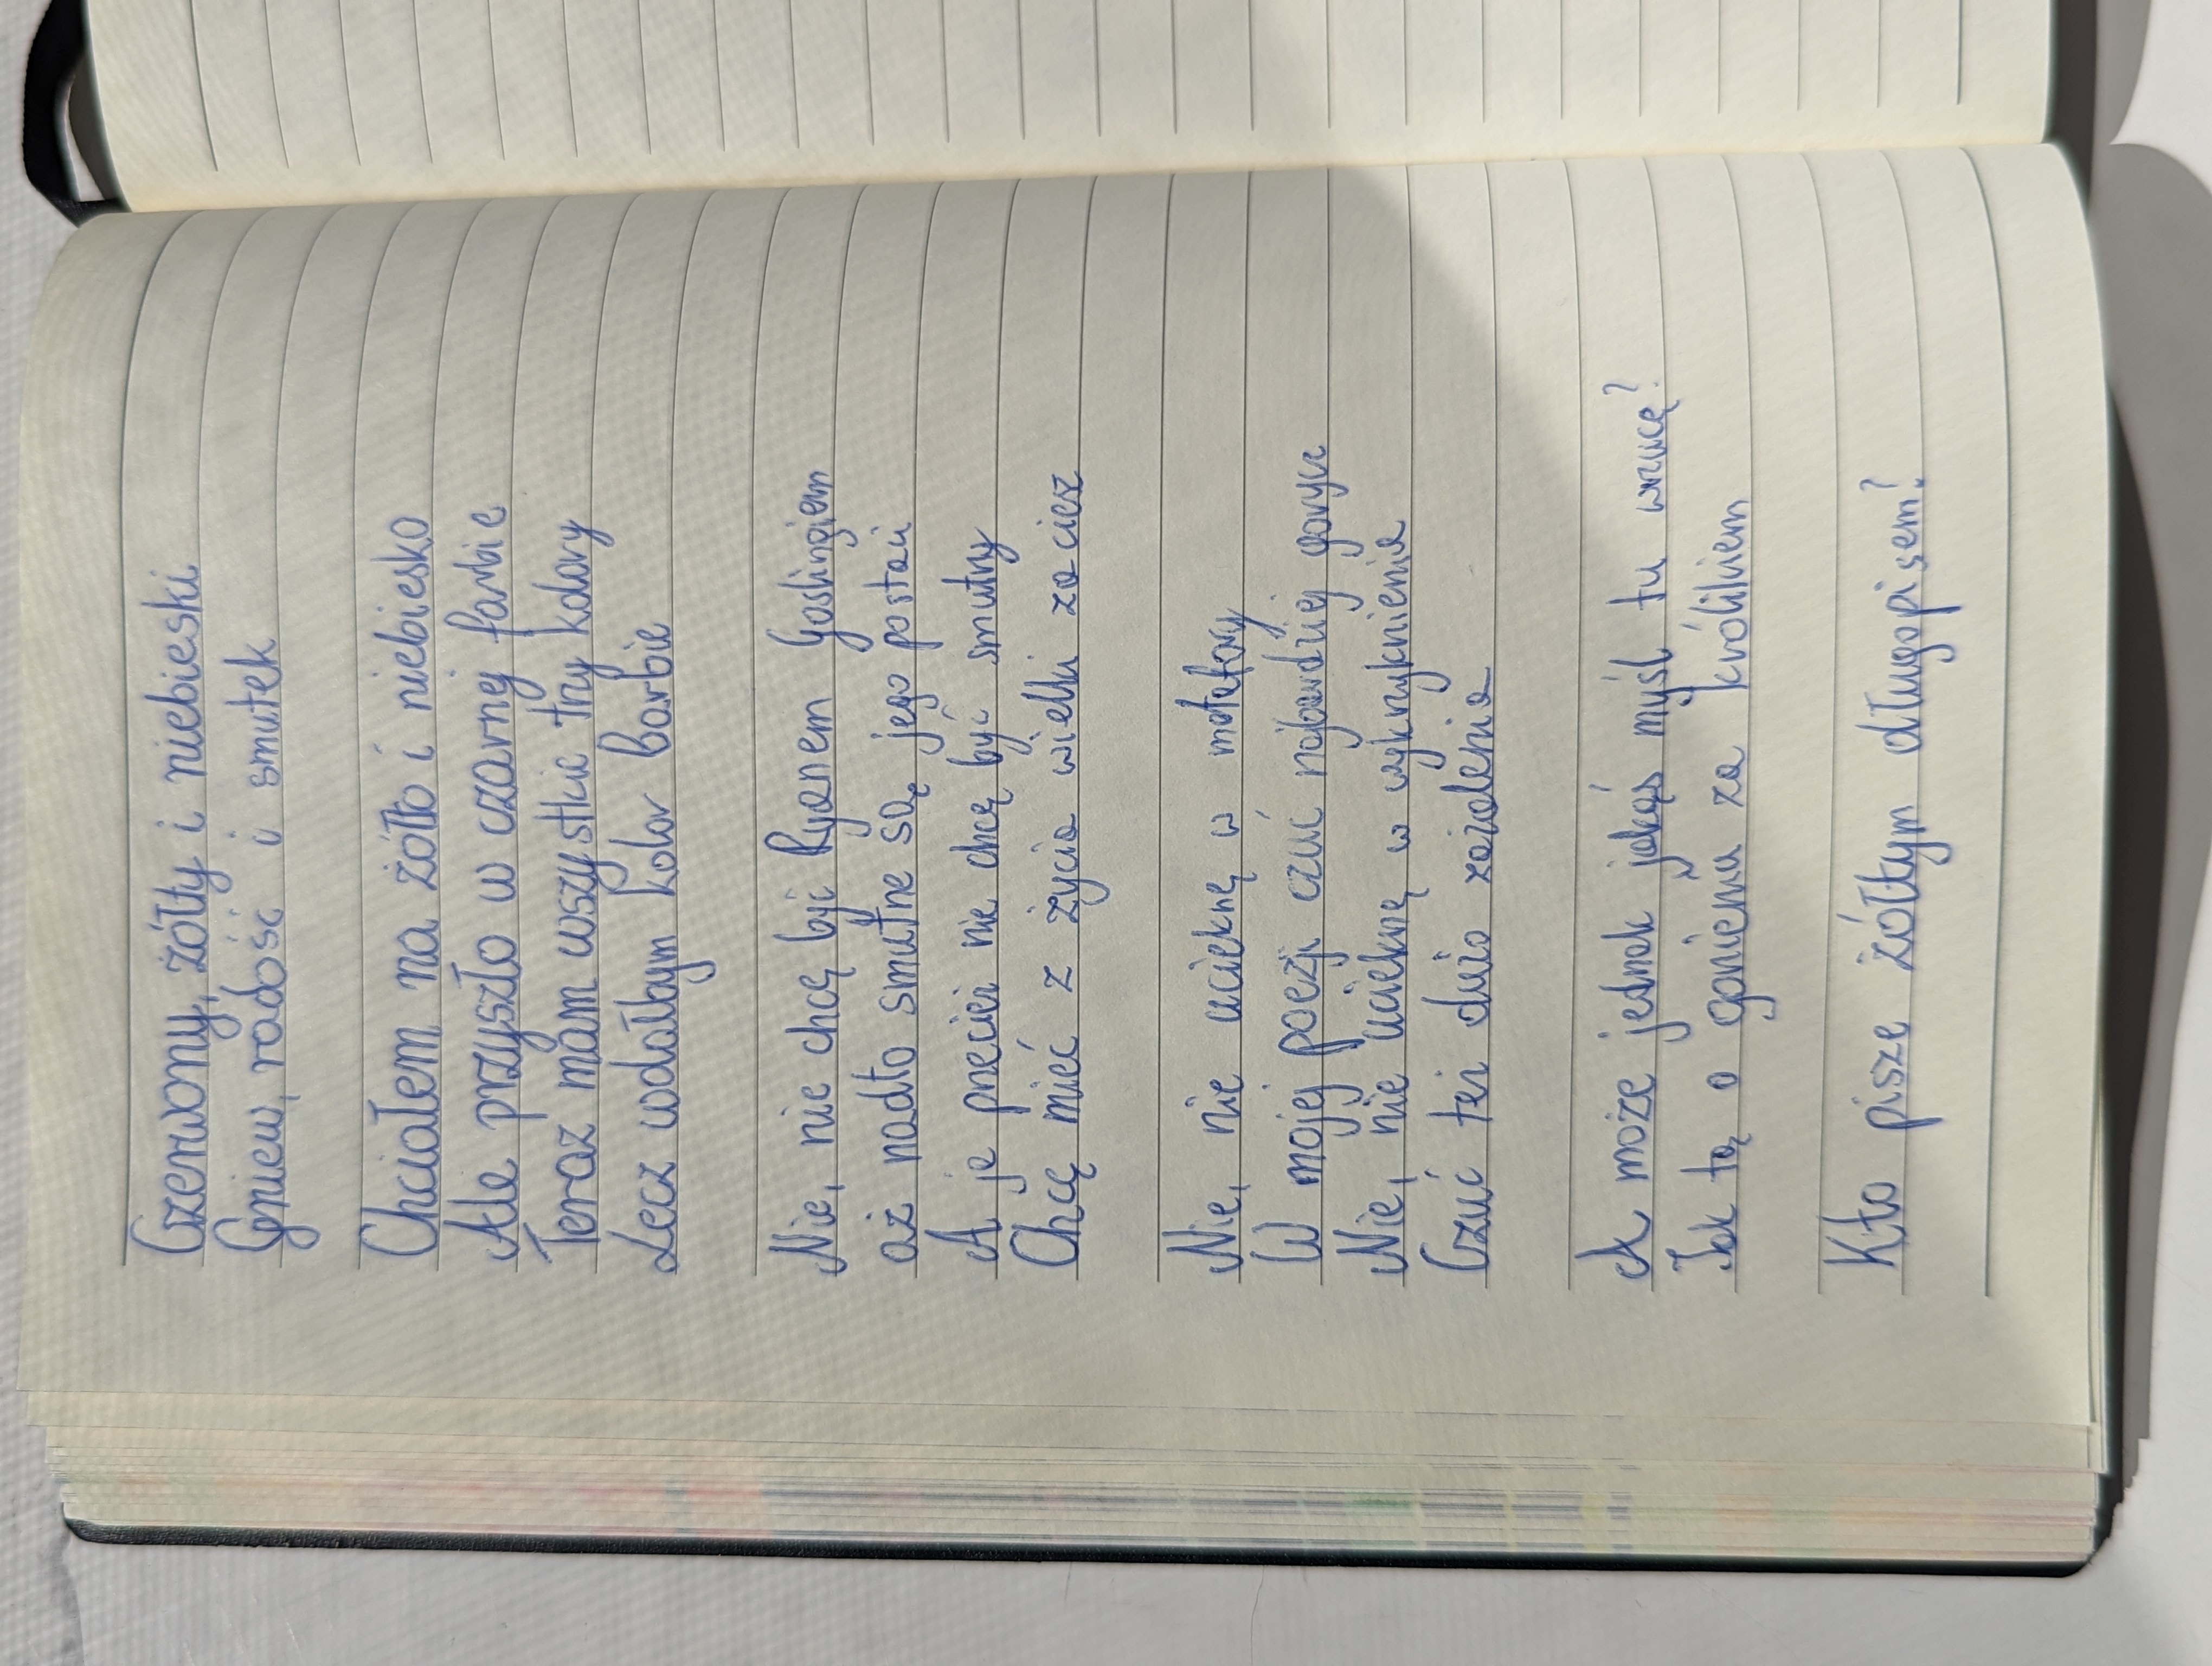 Czerwony, żółty i niebieski
Gniew, radość i smutek
Chciałem na żółto i niebiesko
Ale przyszło w czarnej farbie
Teraz mam wszystkie trzy kolory
Lecz wdałbym kolor Barbie
Nie, nie chcę być Ryanem Goslingiem
aż nadto smutne są jego postaci
A ja przecież nie chcę być smutny
Chcę mieć z życia wielki zaciesz
Nie, nie ucieknę w metafory
W mojej poezji czuć najbardziej gorycz
Nie, nie ucieknę w wykrzyknienia
Czuć też dużo zażalenia
A może jednak jakąś myśl tu wrzucę?
Jak tą o gonieniu za królikiem
Kto pisze żółtym długopisem?